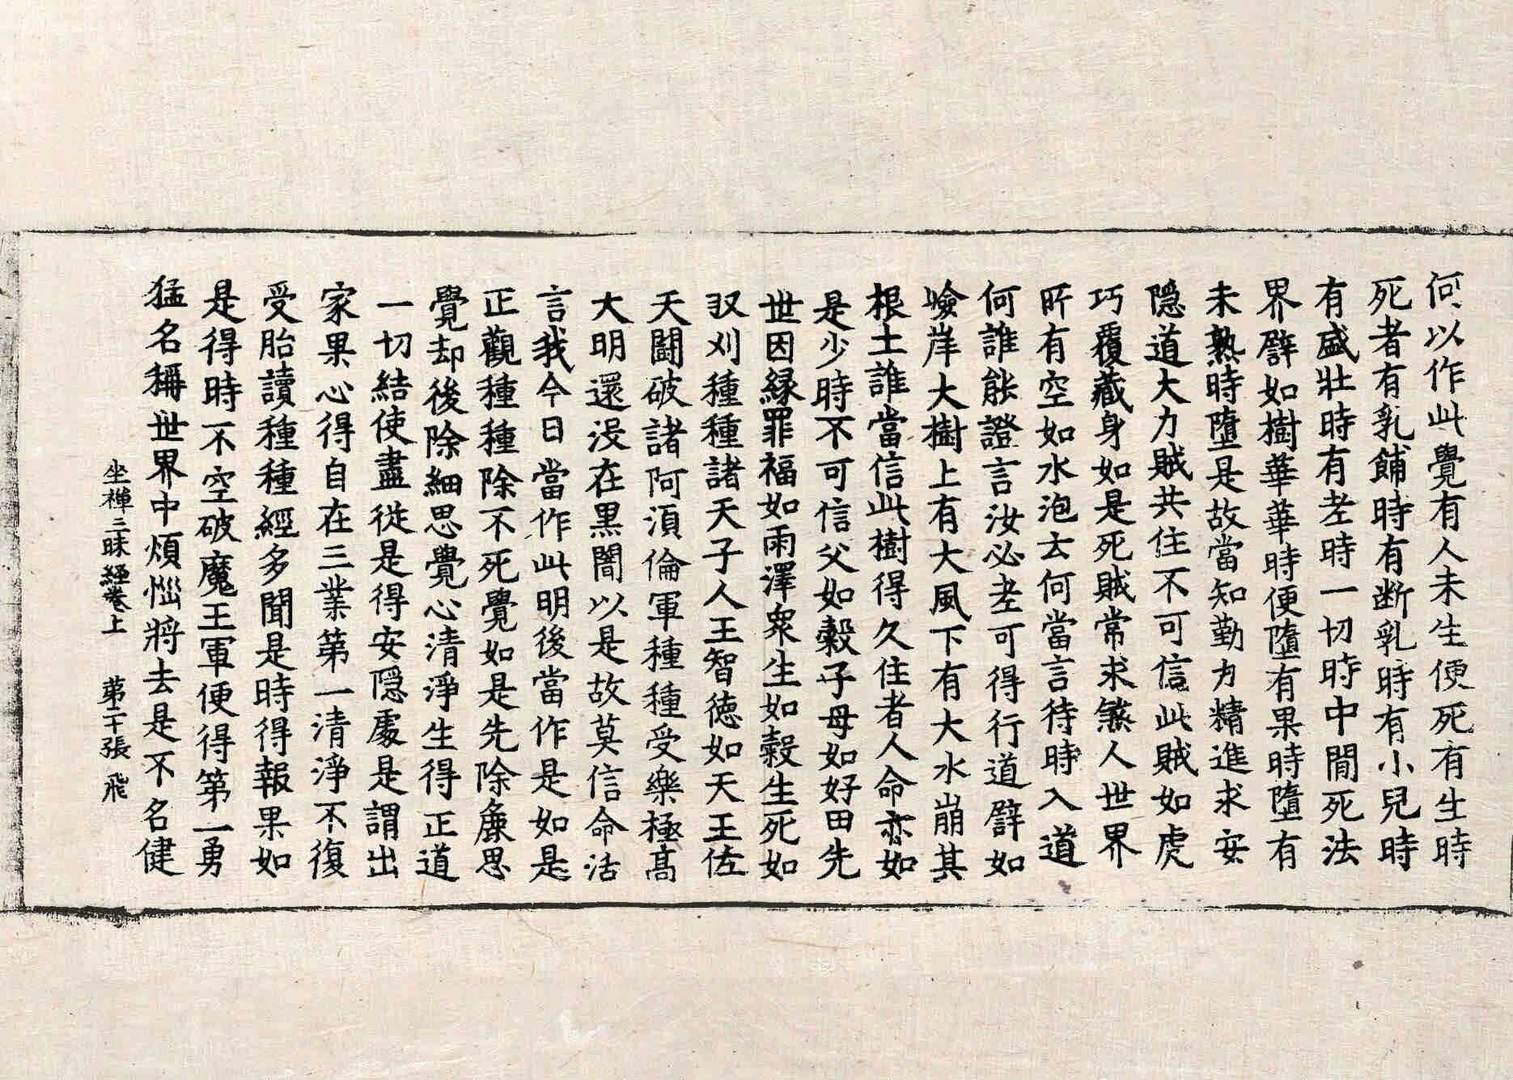 何以作此覺有人未生便死有生時
死者有乳餔時有断乳時有小兒時
有盛壯時有老時一切時中閒死法
界譬如樹華華時便墮有果時墮有
未熟時墮是故當知勤力精進求安
隱道大力賊共住不可信此賊如虎
巧覆藏身如是死賊常求煞人世界
所有空如水泡云何當言待時入道
何誰能證言汝必老可得行道譬如
嶮岸大樹上有大風下有大水崩其
根土誰當信此樹得久住者人命亦如
是少時不可信父如穀子母如好田先
世因緣罪福如雨澤衆生如穀生死如
収刈種種諸天子人王智德如天王佐
天鬪破諸阿湏倫軍種種受樂極高
大明還没在黑闇以是故莫信命活
言我今日當作此明後當作是如是
正觀種種除不死覺如是先除麁思
覺却後除細思覺心清淨生得正道
一切結使盡從是得安隱處是謂出
家果心得自在三業第一清淨不復
受胎讀種種經多聞是時得報果如
是得時不空破魔王軍便得第一勇
猛名稱世界中煩惱將去是不名健
坐禅三昧經卷上　第二十張　飛